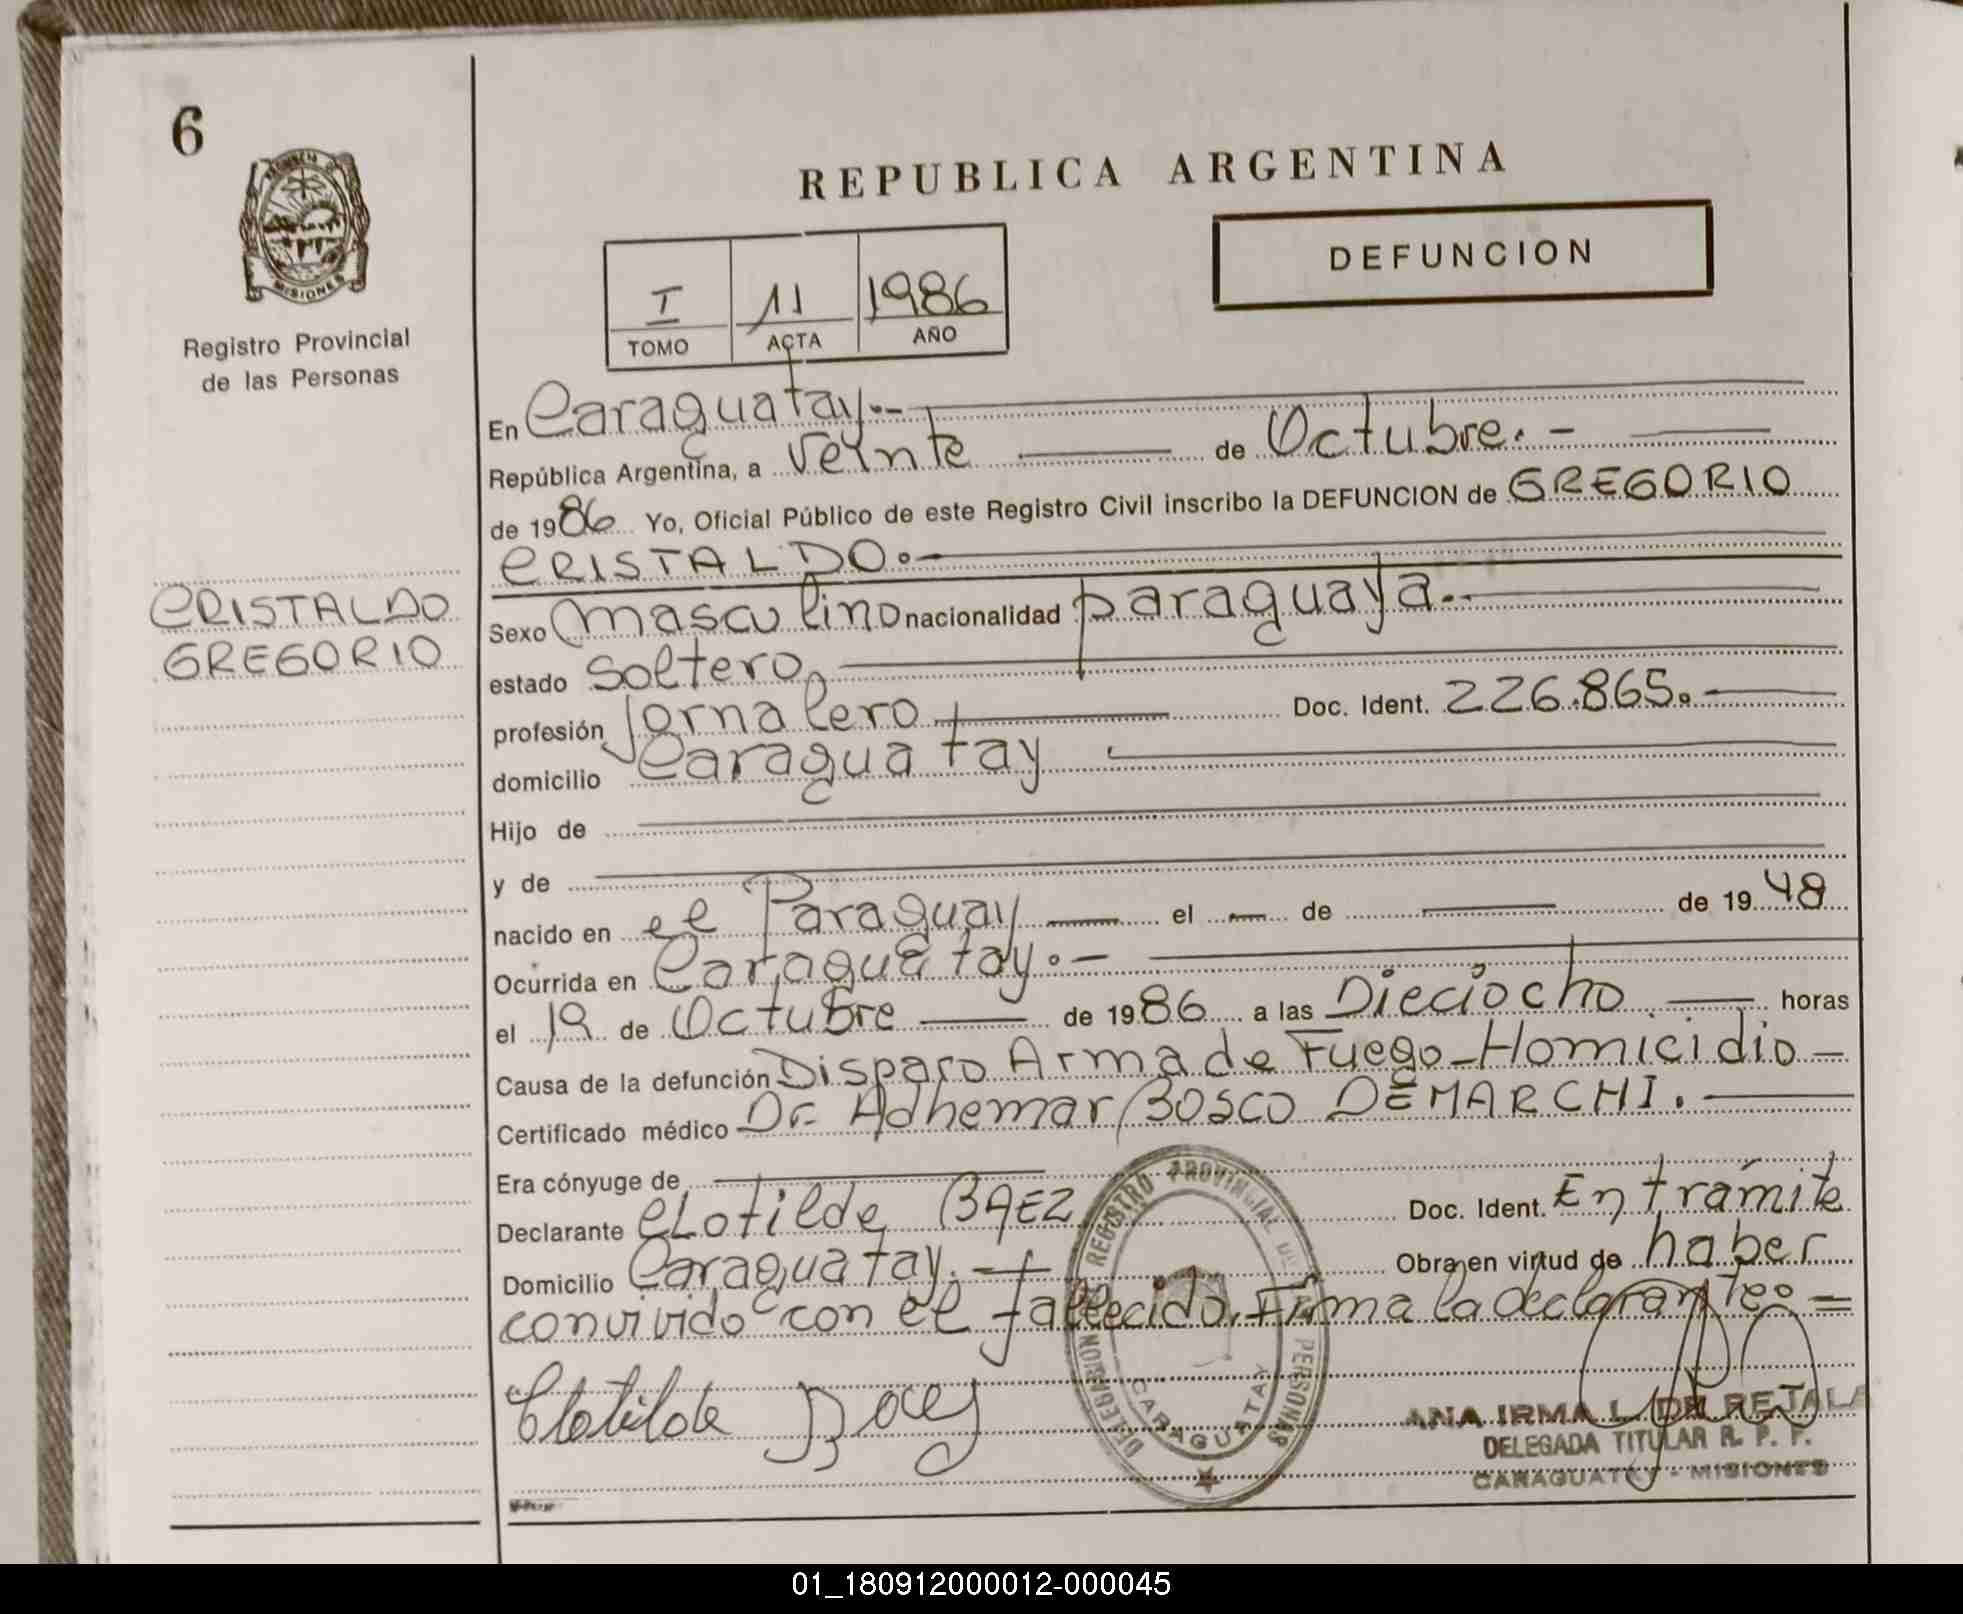 6
PROVINCIA DE
MISIONES
Registro Provincial
de las Personas
CRISTALDO
GREGORIO
REPUBLICA ARGENTINA
DEFUNCION
I 11 1986
TOMO ACTA AÑO
En Caraguatay.-
República Argentina, a Veinte de Octubre.-
de 1986 Yo, Oficial Público de este Registro Civil inscribo la DEFUNCION de GREGORIO
CRISTALDO.-
Sexo Masculino nacionalidad paraguaya.-
estado Soltero
profesión Jornalero Doc. Ident. 226.865.-
domicilio Caraguatay
Hijo de
y de
nacido en el Paraguay el — de — de 1948
Ocurrida en Caraguatay.-
el 19 de Octubre de 1986 a las Dieciocho horas
Causa de la defunción Disparo Arma de Fuego-Homicidio-
Certificado médico Dr. Adhemar BOSCO DEMARCHI.
Era cónyuge de
Declarante CLotilde BAEZ Doc. Ident. En trámite
Domicilio Caraguatay.- Obra en virtud de haber
convivido con el fallecido. Firma la declarante.=
Clotilde Baez
DELEGACION REGISTRO PROVINCIAL DE LAS PERSONAS
CARAGUATAY
ANA IRMA L. DE RETALA
DELEGADA TITULAR R. P. P.
CARAGUATAY - MISIONES
01_180912000012-000045